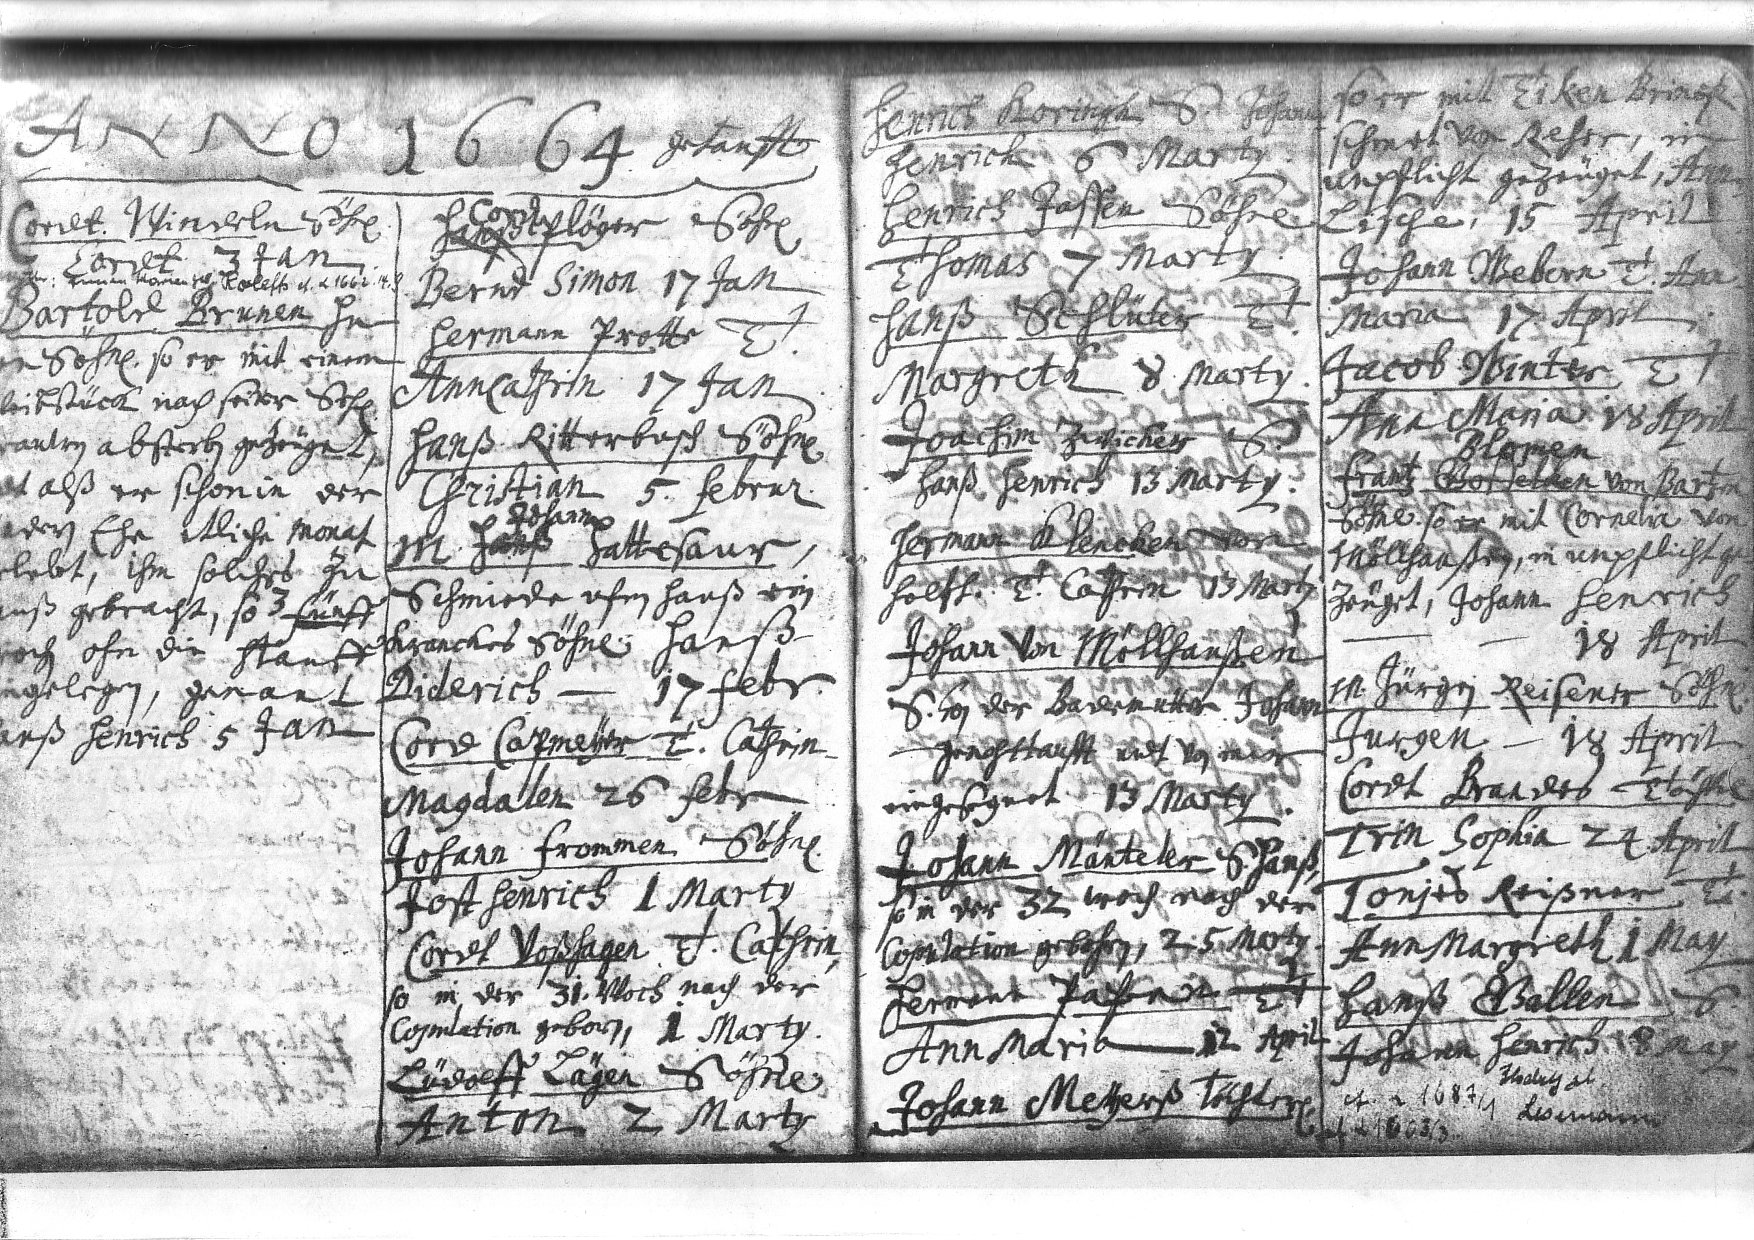 ANNO 1664 getaufft
Cordt Windeln Söhnl.
Cordt 3 Jan
Bartold Brunen
Söhnl. so er mit einem
nach seiner
absterben gezeuget,
alß er schon in der
Ehe etliche Monat
gelebt, ihm solches zu
hauß gebracht, so 3
noch ohn die Tauffe
gelegen, genant
Hanß Henrich 5 Jan
Cordt
Plöger Söhnl.
Bernd Simon 17 Jan
Hermann Protte T.
Ann Cathrin 17 Jan
Hanß Ritterbusch Söhnl.
Christian 5. Februr.
Johann
M. Hanß Hattesaur,
Schmiede ufm Hauß ein
kranckes Söhnl. Hanß
Diderich — 17 Febr.
Cord Capmeyer T. Cathrin
Magdalen 26 Febr
Johann Frommen Söhnl.
Jost Henrich 1 Marty
Cordt Voßhagen T. Cathrin,
so in der 31. Woch nach der
Copulation geborn, 1 Marty.
Lüdolff Lägen Söhnl.
Anton 2 Marty
Henrich S. Johann
Henrich 6 Marty.
Henrich Jassen Söhnl.
Thomas 7 Marty.
Hanß Schlüter T.
Margreth 8 Marty.
Joachim Zwicher S.
Hanß Henrich 13 Marty.
Hermann Klencken
T. Cathrin 13 Marty
Johann von Möllhaußen
S. von der Bademutter Johann
jeachttaufft undt von mir
eingesegnet 13 Marty.
Johann Mänteler S. Hanß,
so in der 32 woch nach der
Copulation gebohren, 25 Marty.
Hermann Papen T
Ann Maria — 12 April
Johann Meyerß Töchterl.
so er mit Ilken
von Reher, in
unpflicht gezeuget, Ann
Lische, 15 April
Johann Webern T. Ann
Maria 17 April
Jacob Winter T
Ana Maria 18 April
Blomen
Frantz von
Söhnl. so er mit Cornelia von
Möllhaußen, in unpflicht ge
zeuget, Johann Henrich
— — 18 April
M. Jürgen Reisener Söhnl.
Jurgen — 18 April
Cordt Brandes Töchterl.
Trin Sophia 24 April
Tonjes Reißner T.
Ann Margreth 1 May
Hanß Ballen S
Johann Henrich 8 May
cf. a 1687